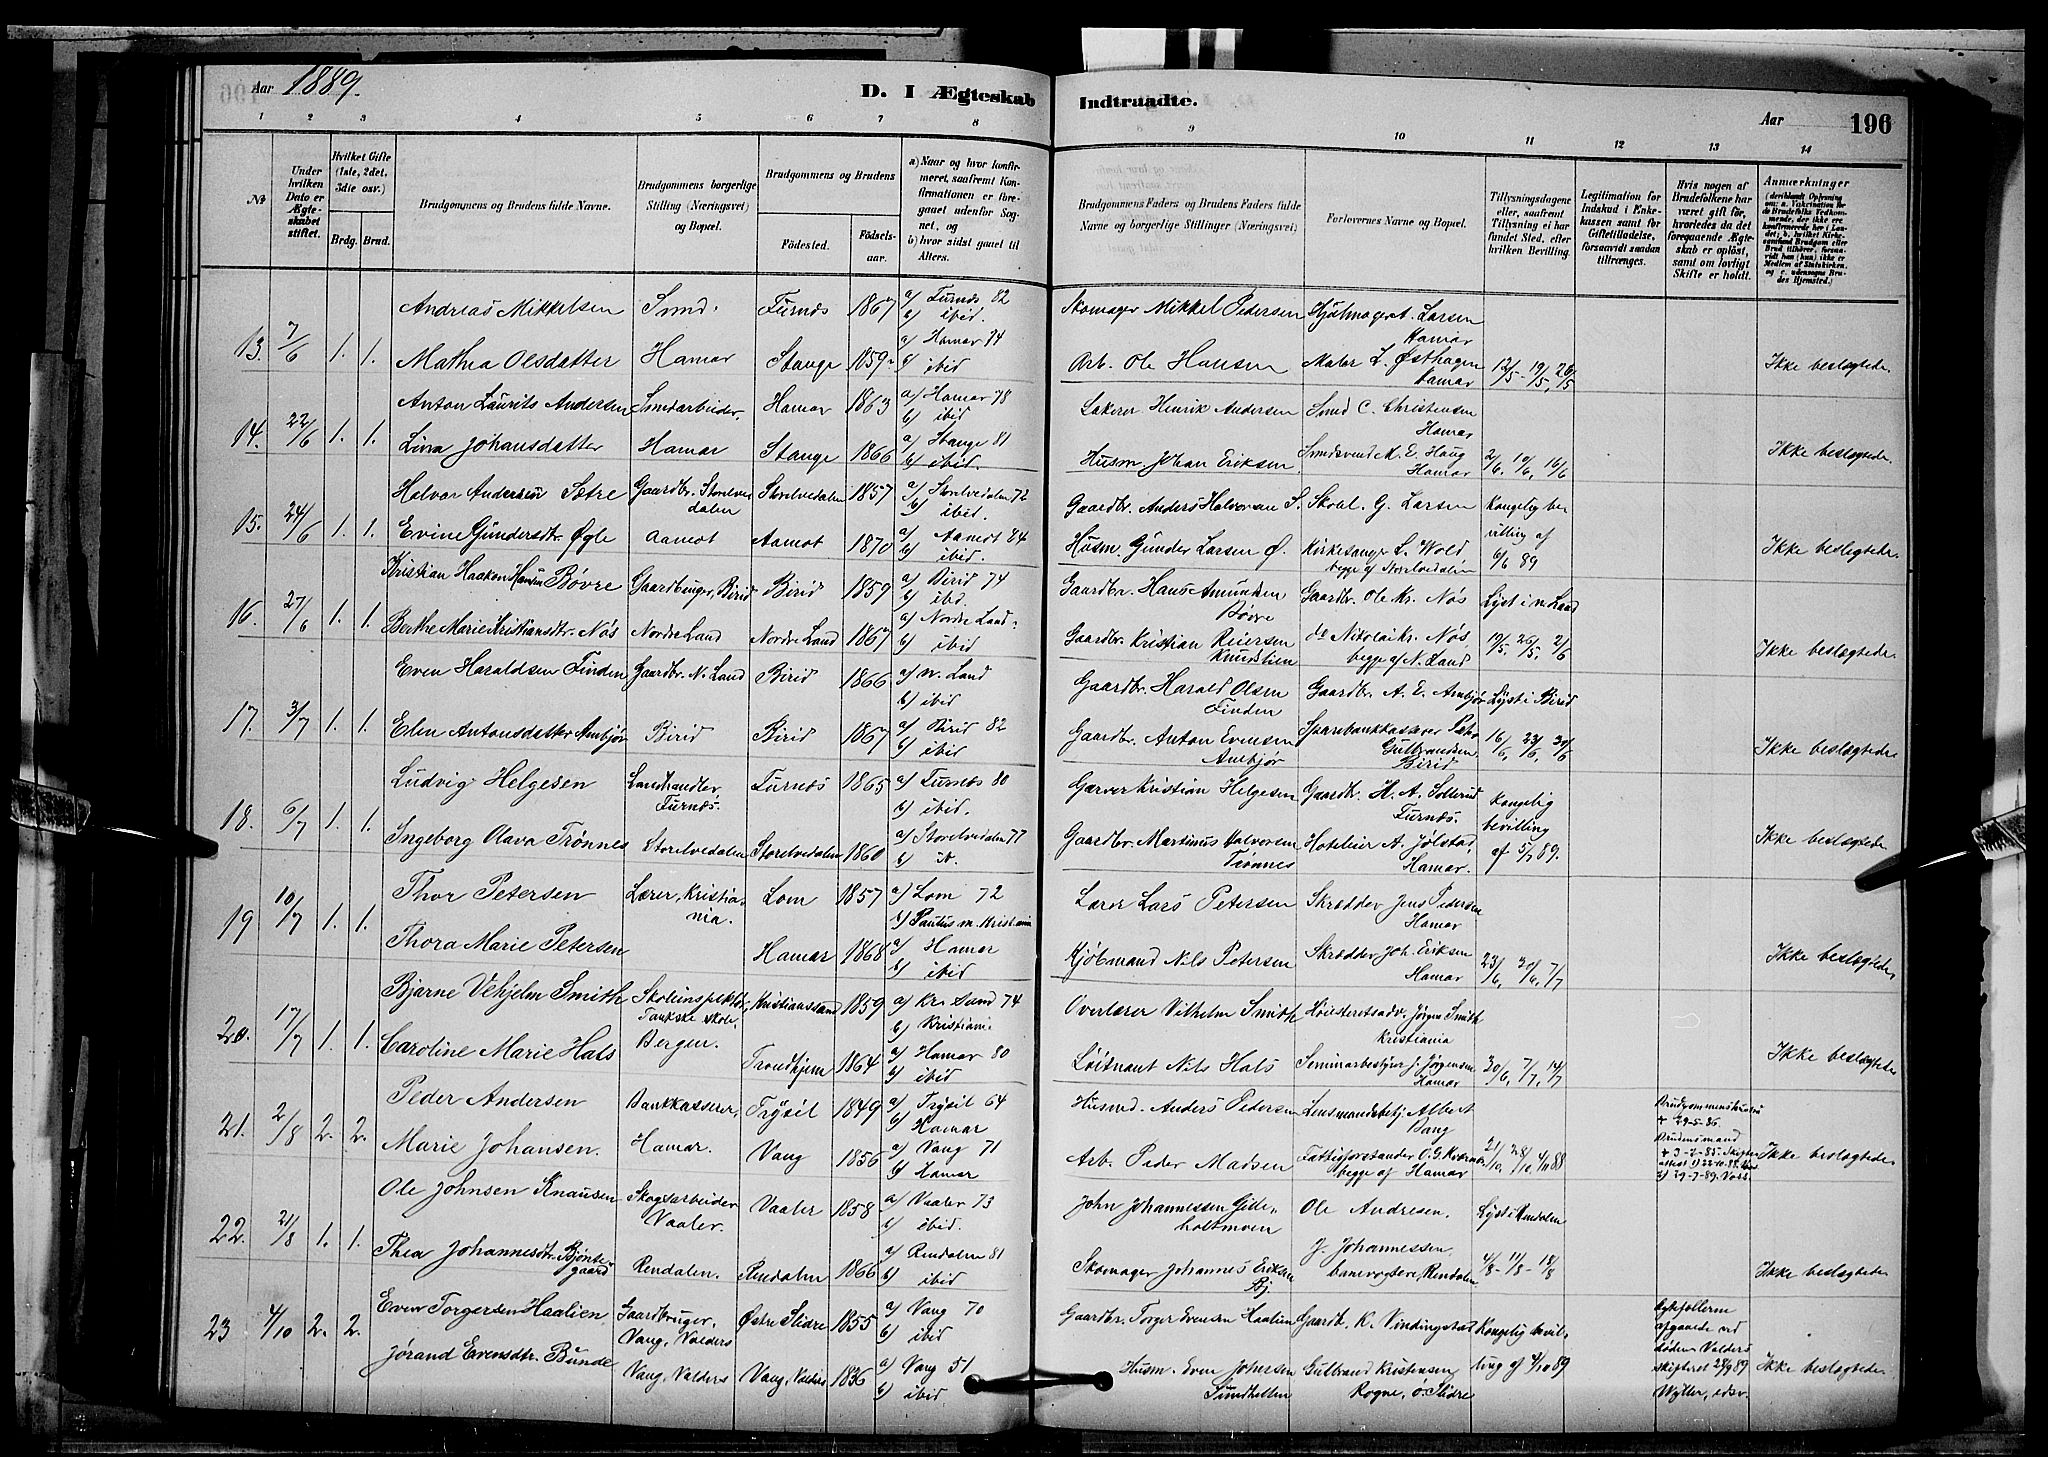 Aar 1889.
D. I Ægteskab Indtraadte.
Aar 196
1 2 3 4 5 6 7 8 9 10 11 12 13 14
№
Under hvilken Dato er Ægteskabet stiftet.
Hvilket Gifte (1ste, 2det, 3die osv.)
Brdg. Brud.
Brudgommens og Brudens fulde Navne.
Brudgommens borgerlige Stilling (Næringsvei) og Bopæl.
Brudgommens og Brudens
Fødested.
Fødselsaar.
a) Naar og hvor konfirmeret, saafremt Konfirmationen er foregaaet udenfor Sognet, og
b) hvor sidst gaaet til Alters.
Brudgommens Faders og Brudens Faders fulde Navne og borgerlige Stillinger (Næringsvei)
Forlovernes Navne og Bopæl.
Tillysningsdagene eller, saafremt Tillysning ei har fundet Sted, efter hvilken Bevilling.
Legitimation for Indskud i Enkekassen samt for Giftetilladelse, forsaavidt saadan tiltrænges.
Hvis nogen af Brudefolkene har været gift før, hvorledes da det foregaaende Ægteskab er opløst, samt om lovligt Skifte er holdt.
Anmærkninger
13. 7/6 1. 1.
Andreas Mikkelsen Smed Furnæs 1867 a) Furnæs 82 b) ibid. Skomager Mikkel Pedersen Hjulmager A. Larsen Hamar
Mathea Olsdatter Hamar Stange 1859 a) Hamar 74 b) ibid Arb. Ole Hansen Maler L. Østhagen Hamar 12/5 - 19/5, 26/5 Ikke beslægtede.
14. 22/6 1. 1.
Anton Laurits Andersen Smedarbeider Hamar 1863 a) Hamar 78 b) ibid Lakerer Henrik Andersen Smed C. Christensen Hamar
Lina Johansdatter Hamar Stange 1866 a) Stange 81 b) ibid. Husm. Johan Eriksen Smedsvend M. E. Haug Hamar 2/6, 10/6, 16/6 Ikke beslægtede.
15. 24/6 1. 1.
Halvor Andersen Sætre Gaardbr. Storelvedalen Storelvedalen 1857 a) Storelvedalen 72 b) ibid. Gaardbr. Anders Halvorsen S. Skohl. G. Larsen Kongelig bevilling af 6/6 89
Evine Gundersdtr. Øgle Aamot Aamot 1870 a) Aamot 84 b) ibid Husm. Gunder Larsen Ø. Kirkesanger L. Wold begge af Storelvedalen Ikke beslegtede.
16. 27/6 1. 1.
Kristian Haakon Hansen Bøvre Gaardbruger, Birid Birid 1859 a) Birid 74 b) ibd. Gaardbr. Hans Amundsen Bøvre Gaardbr. Ole Kr. Nøs Lyst i N. Land
Berthe Marie Kristiansdtr. Nøs Nordre Land Nordre Land 1867 a) Nordre Land b) ibid Gaardbr. Kristian Reiersen Knudstien do Nikolai Kr. Nøs begge af N. Land 19/5, 26/5, 2/6 Ikke beslægtede.
17. 3/7 1. 1.
Even Haraldsen Finden Gaardbr. N. Land Birid 1866 a) N. Land b) ibid Gaardbr. Harald Olsen Finden Gaardbr. A. E. Ambjør Lyst i Birid
Elen Antonsdatter Ambjør Birid Birid 1867 a) Birid 82 b) ibid Gaardbr. Anton Evensen Ambjør Sparebankkasserer Gulbrandsen Birid 16/6, 23/6, 30/6 Ikke beslægtede.
18. 6/7 1. 1.
Ludvig Helgesen Landhandler, Furnæs. Furnæs 1865 a) Furnæs 80 b) ibid. Garver Kristian Helgesen Gaardbr. H. A. Solterud Furnæs. Kongelig bevilling af 5/7 89.
Ingeborg Olava Trønnes Storelvedalen Storelvedalen 1860 a) Storelvedalen 77 Gaardbr. Martinus Halvorsen Trønnes Hoteleier A. Jølstad, Hamar. Ikke beslægtede
19 10/7 1. 1.
Thor Petersen Lærer, Kristiania. Lom 1857 a) Lom 72 b) Paulus m. Kristiania Lærer Lars Petersen Skrædder Jens Pedersen Hamar
Thora Marie Petersen Hamar 1868 a) Hamar b) ibid Kjøbmand Nils Petersen Skrædder Joh. Eriksen Hamar 23/6, 30/6, 7/7 Ikke beslægtede
20. 17/7 1. 1.
Bjarne Vilhjelm Smith Skoleinspektør, Tankske skole. Bergen. Kristianssund 1859 a) Kr. Sund 74 b) Kristiania Overlærer Vilhelm Smith Høiesteretsadv. Jørgen Smith Kristiania
Caroline Marie Hals Trondhjem 1864 a) Hamar 80 b) ibid Løitnant Nils Hals Seminarbestyrer J. Jørgensen Hamar 30/6, 7/7, 14/7 Ikke beslægtede
21. 2/8 2. 2.
Peder Andersen Bankkasserer, Hamar. Trysil 1849 a) Trysil 64 b) Hamar Husmd. Anders Pedersen Lensmandsbetj. Albert Bang
Marie Johansen. Vang 1856 a) Vang 71 b) Hamar Arb. Peder Madsen Fattigforstander O. G. Kværnæs begge af Hamar 21/10, 28/10, 4/11 88 Ikke beslægtede
22. 21/8 1. 1.
Ole Johnsen Knausen Skogsarbeider Vaaler. Vaaler 1858 a) Vaaler 73 b) ibid. John Johannessen Gideholtmoen Ole Andresen. Lyst i Rendalen
Thea Johannesdtr. Bjøntegaard Rendalen. Rendalen 1866 a) Rendalen 81 b) ibid Skomager Johannes Eriksen Bj. J. Johannessen banevogtere, Rendalen 4/8 - 11/8 - 18/8 Ikke beslægtede
23 4/10 2. 2.
Even Torgersen Haalien Gaardbruger, Vang, Valders Østre Slidre 1855 a) Vang 70 b) ibid Gaardbr. Torger Evensen Haalien Gaardbr. K. Vindingstad Kongelig bevilling af 4/10 89
Jørand Evensdtr. Bunde Vang, Valders Vang, Valders 1836 a) Vang 51 b) ibid Husm. Even Johersen Sundhellen Gulbrand Kristensen Rogne, Ø. Slidre afgaaede ved Døden Valders skifteret 27/9 89 Ikke beslægtede